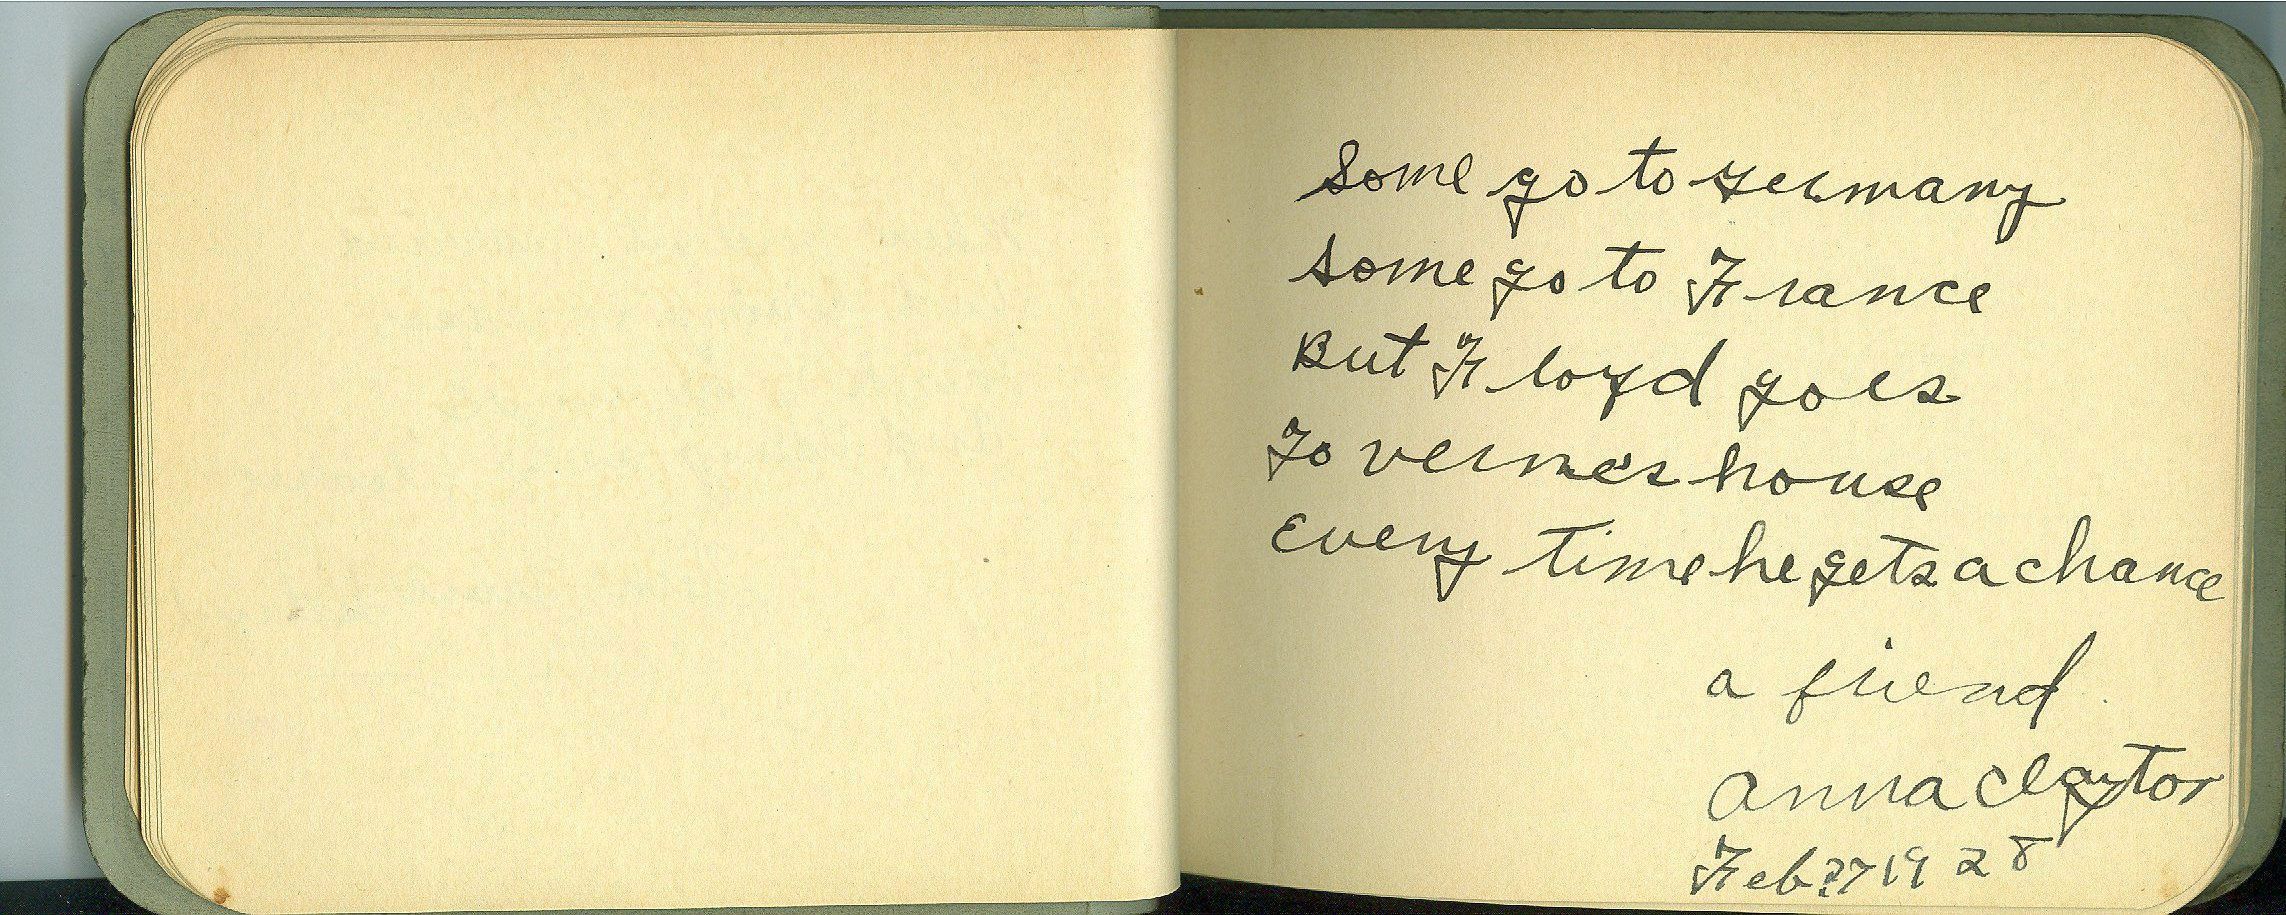 Some go to Germany
Some go to France
But Floyd goes
To Verne's house
Every time he gets a chance
a friend.
Anna Claytor
Feb 27 1928